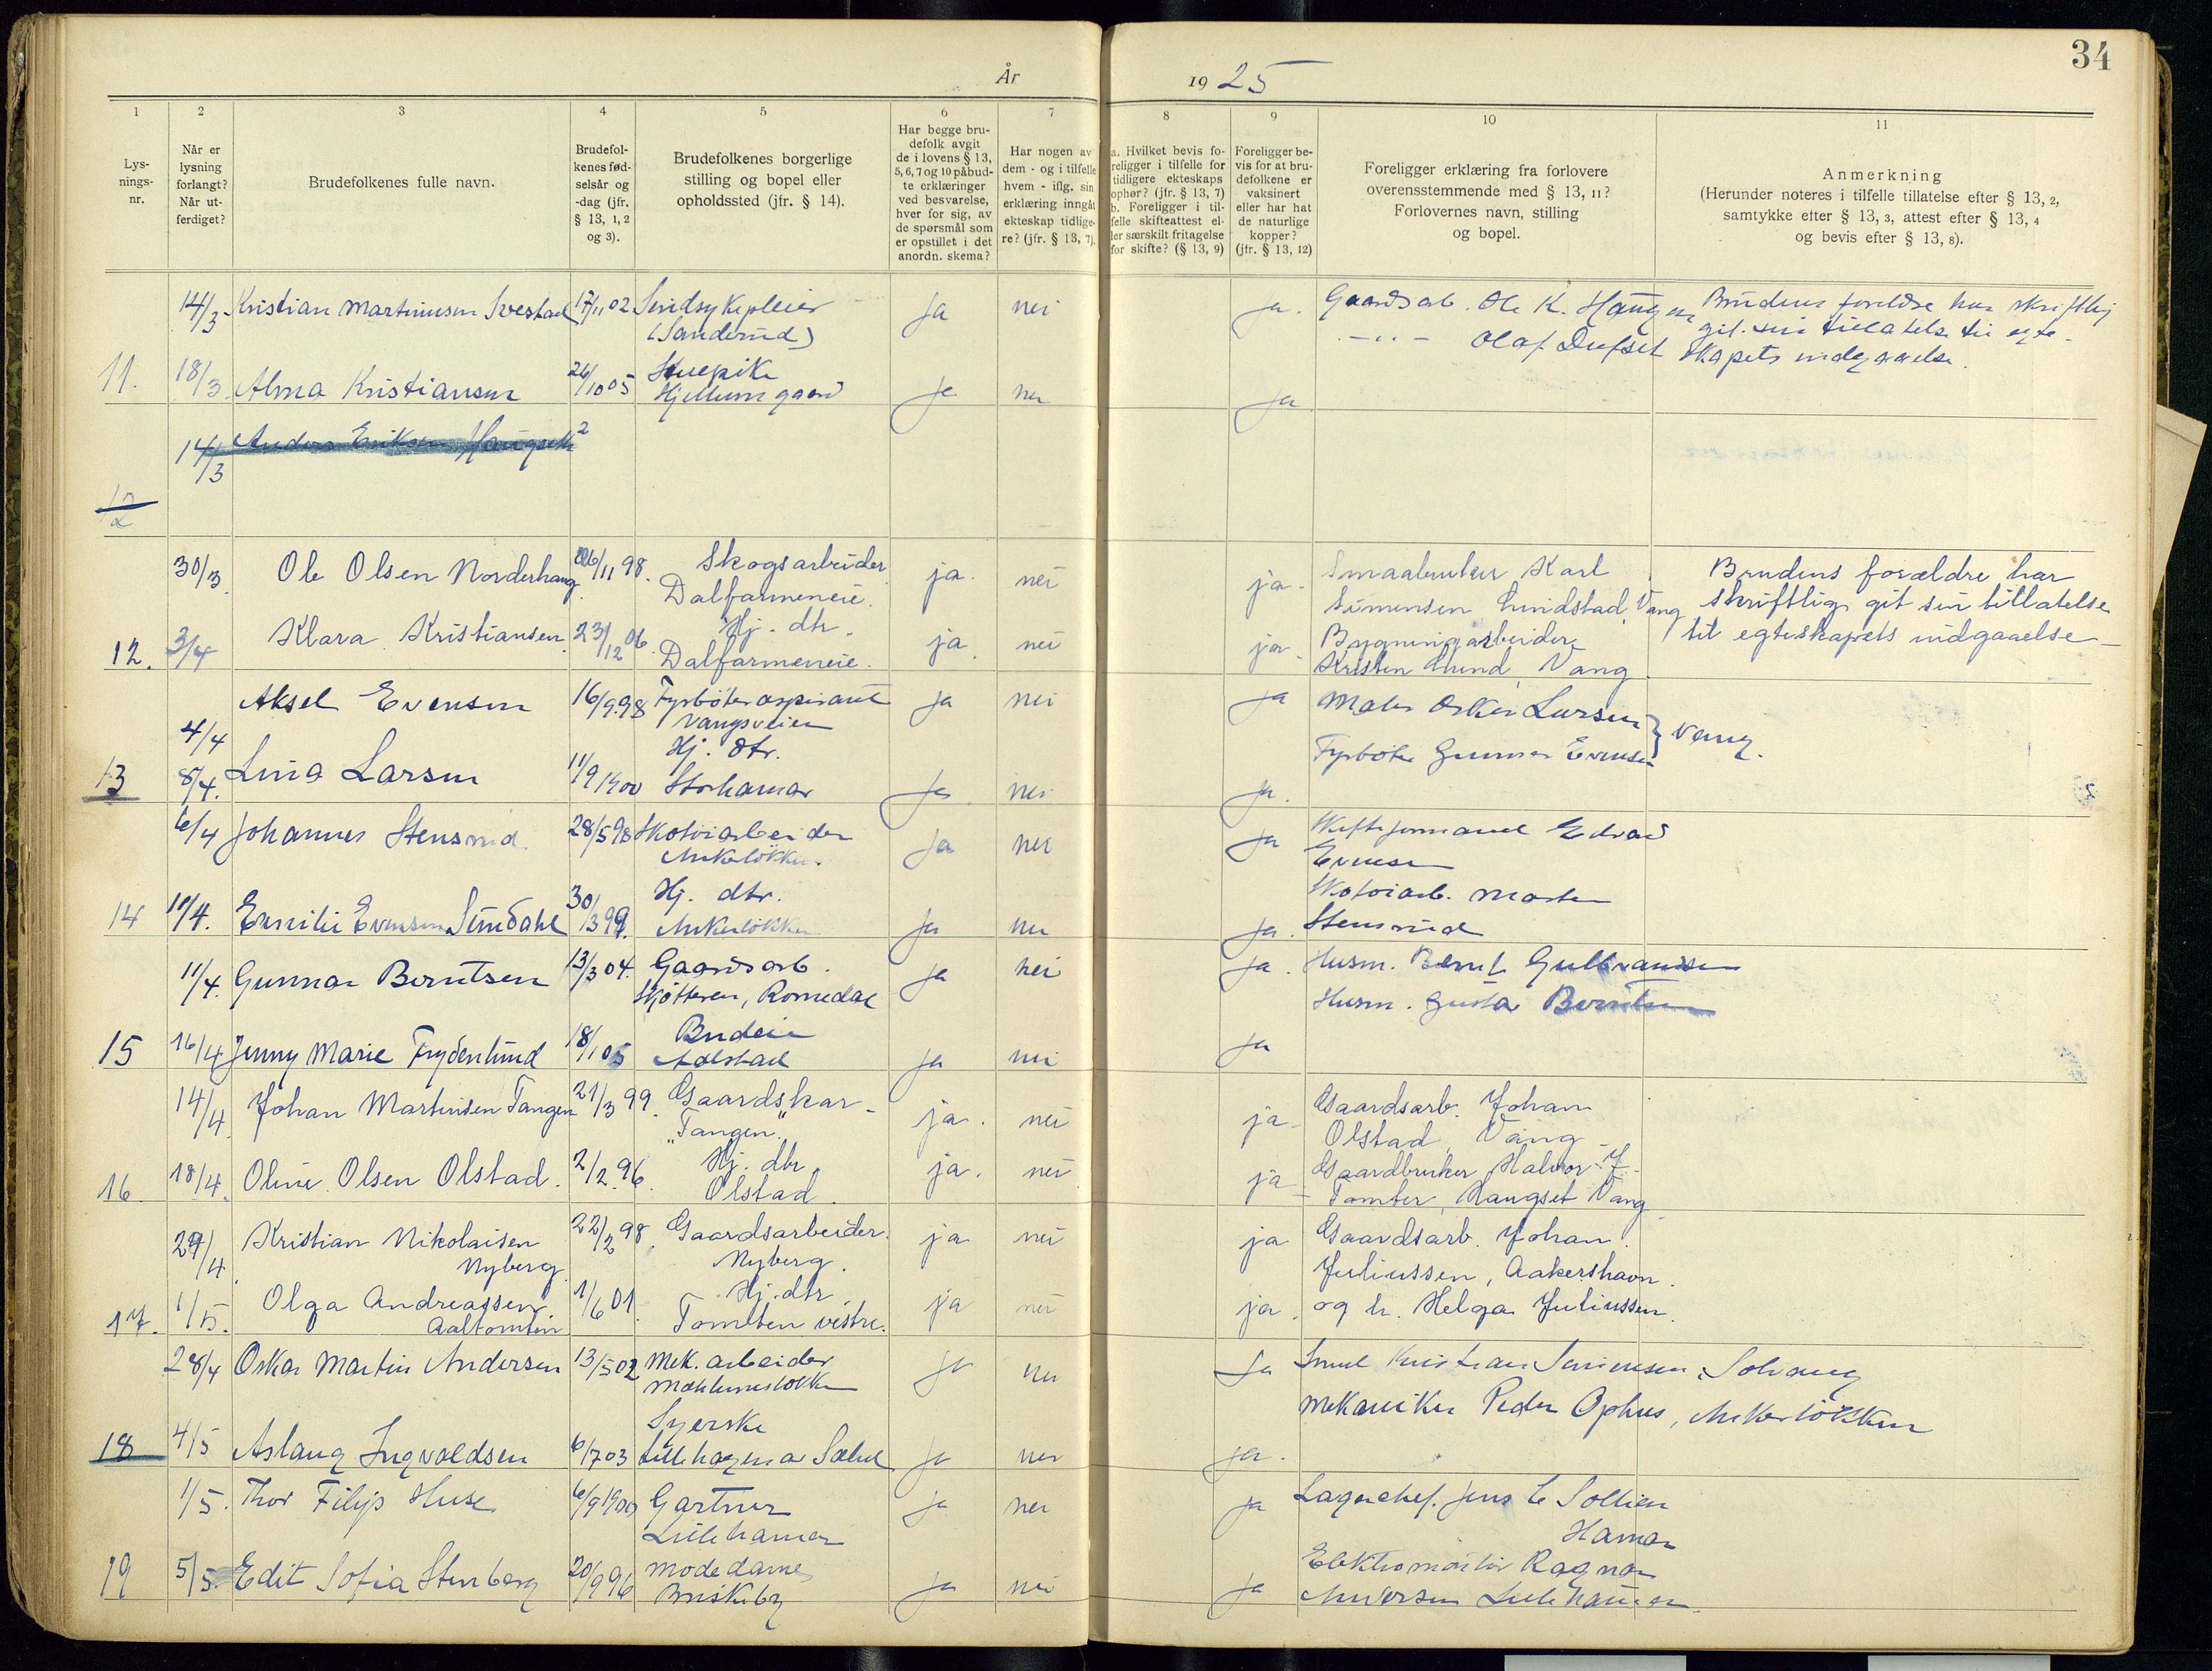 34
År 1925
1
2
3
4
5
6
7
8
9
10
11
Lys-
nings-
nr.
Når er
lysning
forlangt?
Når ut-
ferdiget?
Brudefolkenes fulle navn.
Brudefol-
kenes fød-
selsår og
-dag (jfr.
§ 13, 1, 2
og 3).
Brudefolkenes borgerlige
stilling og bopel eller
opholdssted (jfr. § 14).
Har begge bru-
defolk avgit
de i lovens § 13,
5, 6, 7 og 10 påbud-
te erklæringer
ved besvarelse,
hver for sig, av
de spørsmål som
er opstillet i det
anordn. skema?
Har nogen av
dem - og i tilfelle
hvem - iflg. sin
erklæring inngåt
ekteskap tidlige-
re? (jfr. § 13, 7).
a. Hvilket bevis fo-
religger i tilfelle for
tidligere ekteskaps
ophør? (jfr. § 13, 7)
b. Foreligger i til-
felle skifteattest el-
ler særskilt fritagelse
for skifte? (§ 13, 9)
Foreligger be-
vis for at bru-
defolkene er
vaksinert
eller har hat
de naturlige
kopper?
(jfr. § 13, 12)
Foreligger erklæring fra forlovere
overensstemmende med § 13, 11?
Forlovernes navn, stilling
og bopel.
Anmerkning
(Herunder noteres i tilfelle tillatelse efter § 13, 2,
samtykke efter § 13, 3, attest efter § 13, 4
og bevis efter § 13, 8).
14/3 Kristian Martinusen Svestad 17/11 02 Sindsykepleier ja nei ja. Gaardsarb. Ole K. Haugen Brudens foreldre har skriftlig
(Sanderud) -"- Olaf Dufset git sin tillatelse til egte-
skapets indgaaelse.
11. 18/3 Alma Kristiansen 26/10 05 Stuepike ja nei ja
Hjellumgaard
14/3 Anders Eriksen Haugseth
30/3. Ole Olsen Norderhaug 26/11 98. Skogsarbeider ja. nei ja- Smaabruker Karl Brudens forældre har
Dalfarmeneie. Simensen Lundstad, Vang skriftlig git sin tillatelse
12. 3/4 Klara Kristiansen 23/12 06. Hj. dtr. ja. nei ja- Bygningsarbeider til egteskapets indgaaelse-
Dalfarmeneie. Kristen Lund, Vang
4/4 Aksel Evensen 16/9.98 Fyrbøteraspirant ja nei ja Maler Oskar Larsen } Vang.
Vangsveien Fyrbøter Gunnar Evensen
13 8/4. Lina Larsen 11/9 1900 Hj. dtr. ja nei ja.
Storhamar
6/4 Johannes Stensrud. 28/5 98 Skotøiarbeider ja nei ja Edvard
Ankerløkken. Evensen
14 11/4. Emilie Evensen Simdahl 30/3 99. Hj. dtr. ja nei ja. Skotøiarb. Morten
Ankerløkken Stensrud
11/4. Gunnar Berntsen 13/3 04. Gaardsarb. ja nei ja. Husm. Bernt Gulbrandsen
Skjøtteren, Romedal Husm. Gustav Berntsen
15 16/4 Jenny Marie Frydenlund 18/1 05 Budeie ja nei ja
14/4. Johan Martinsen Tangen 21/3 99. Gaardskar- ja. nei ja- Gaardsarb. Johan
"Tangen" Olstad, Vang-
16. 18/4. Oline Olsen Olstad. 2/2.96. Hj. dtr. ja. nei ja- Gaardbruker Halvor J.
Olstad. Tomter, Haugset Vang
29/4. Kristian Nikolaisen 22/2 98 Gaardsarbeider. ja nei ja Gaardsarb. Johan
Nyberg. Nyberg. Juliussen, Aakershavn.
17. 1/5. Olga Andreassen 1/6 01. Hj. dtr. ja nei ja. og h. Helga Juliussen.
Aaltomten Tomten vestre.
28/4 Oskar Martin Andersen 13/5 02 Mek. arbeider ja nei ja Smed Kristian Simensen, Solvang
Mekaniker Peder Ophus, Ankerløkken
18 4/5 Aslaug Ingvaldsen 6/7 03 Syerske ja nei ja.
1/5. Thor Filip Huse 6/9 1900 Gartner ja nei ja Lagerchef. Jens E Sollien
Lillehamer Hamar
19 5/5 Edit Sofia Stenberg 20/9 96 Modedame ja nei ja Elektromontør Ragnar
Briskeby Andersen Lillehamer.